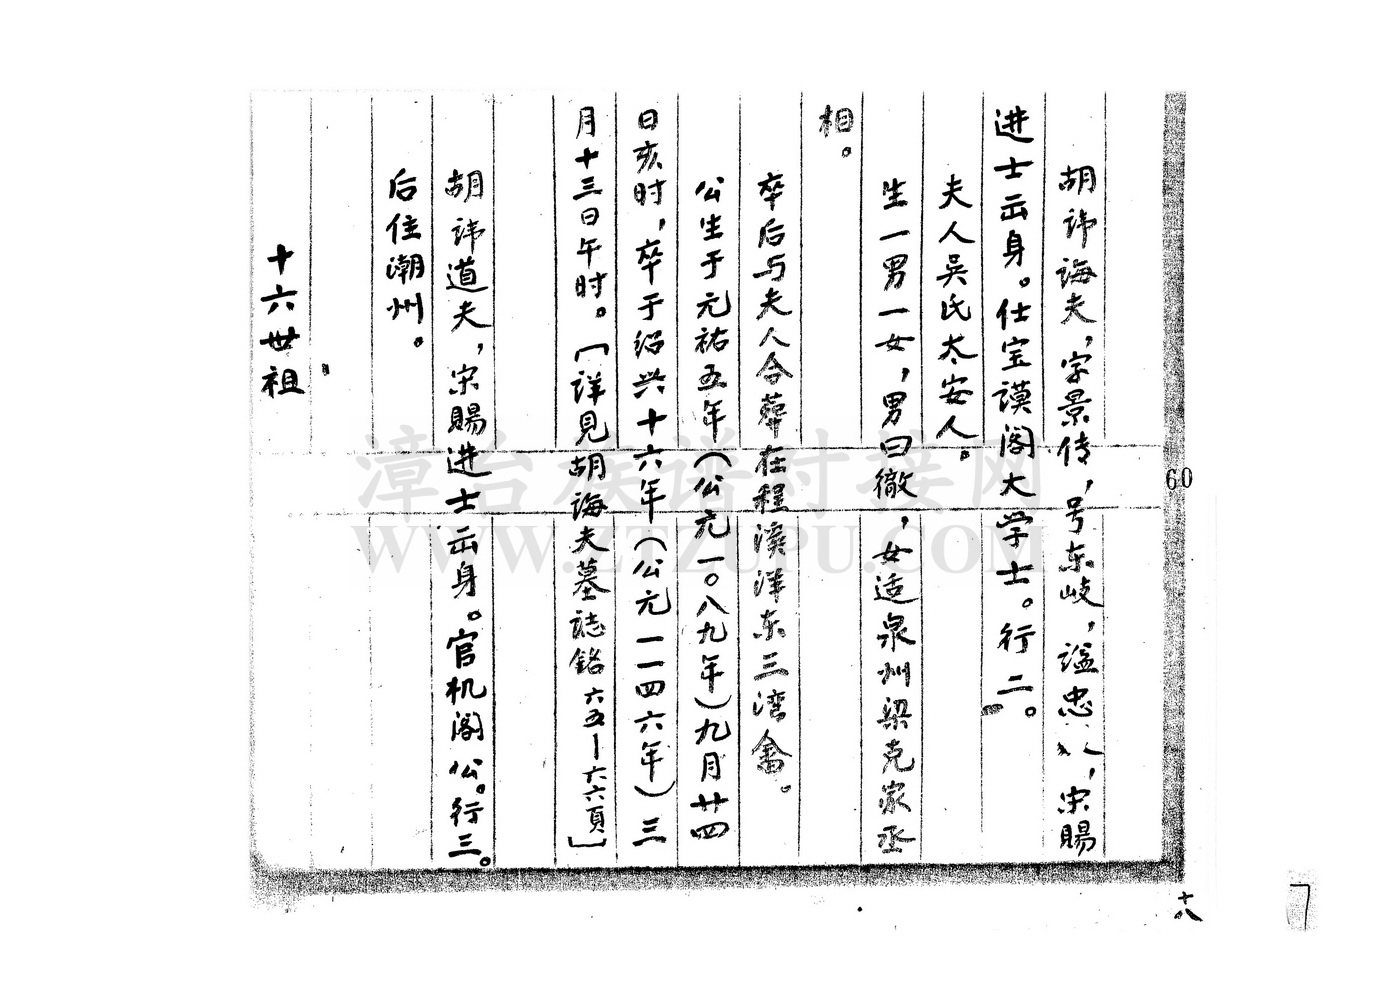 胡讳诲夫，字景传，号东岐，谥忠，宋賜
进士云身。仕宝谟阁大学士。行二。
夫人吴氏太安人。
生一男一女，男曰徹，女适泉州梁克家丞
相。
卒后与夫人合葬在程溪洋东三湾畬。
公生于元祐五年（公元一〇八九年）九月廿四
日亥时，卒于绍兴十六年（公元一一四六年）三
月十三日午时。［详見胡诲夫墓誌銘六五—六六頁］
胡讳道夫，宋賜进士云身。官机阁公。行三。
后住潮州。
十六世祖
60
十八
7
漳台族谱对接网
WWW.ZTZUPU.COM